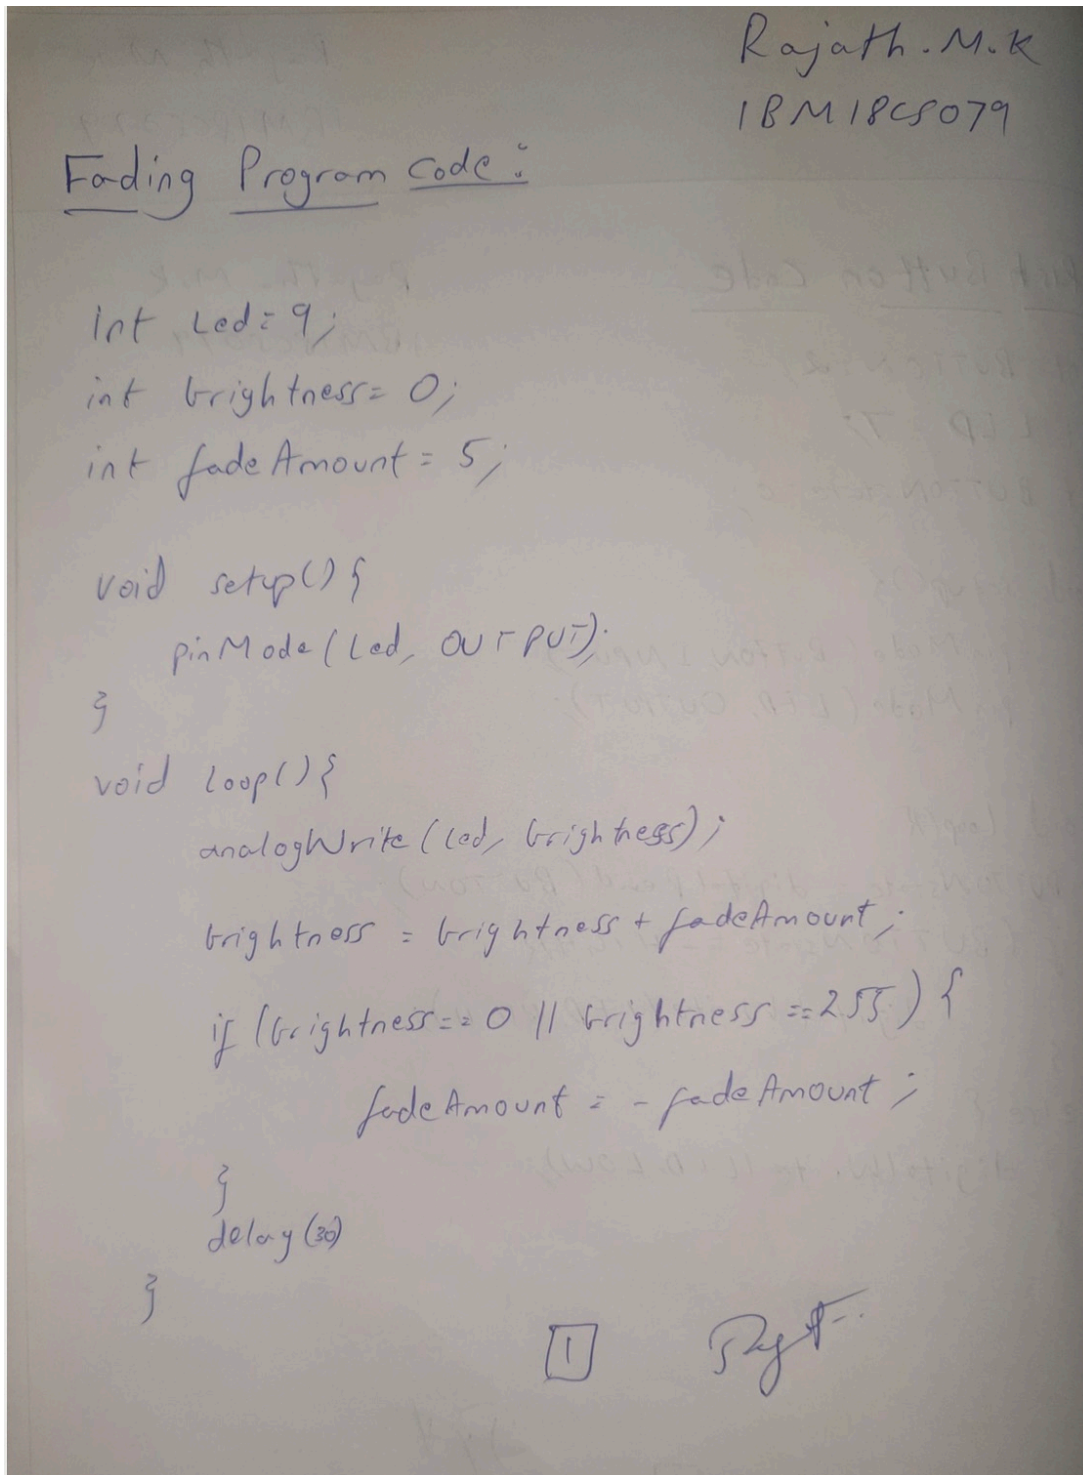 Rajath.M.K
1BM18CS079
Fading Program code:
int Led=9;
int brightness=0;
int fadeAmount=5;
void setup(){
pinMode(led, OUTPUT);
}
void loop(){
analogWrite(led, brightness);
brightness = brightness + fadeAmount;
if (brightness==0 || brightness ==255) {
fadeAmount = -fadeAmount;
}
delay(30)
}
1